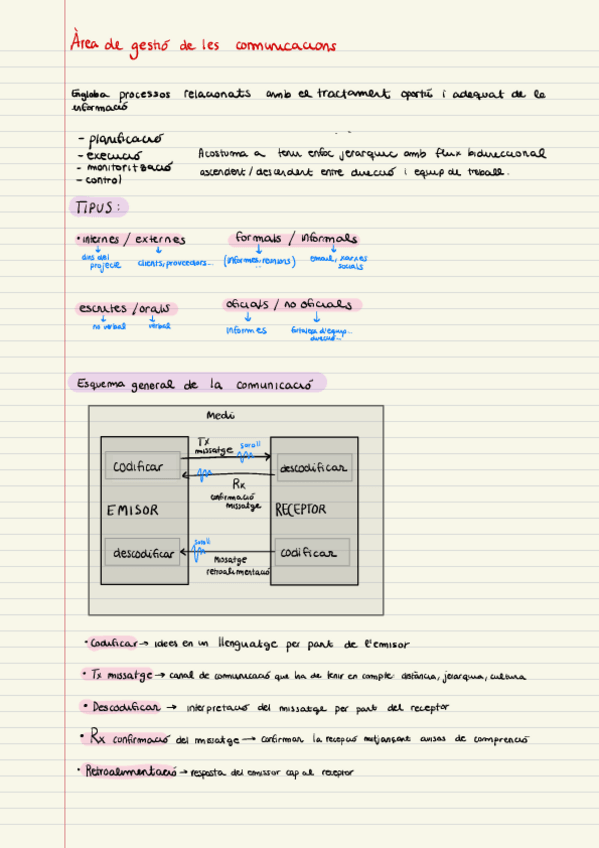 Àrea de gestió de les comunicacions
Engloba processos relacionats amb el tractament oportú i adequat de la
informació
- planificació
- execució
- monitorització
- control
Acostuma a tenir enfoc jerarquic amb flux bidireccional
ascendent/descendent entre direcció i equip de treball.
TIPUS:
• internes / externes
dins del
projecte
clients, proveedors...
formals / informals
(informes, reunions)
email, xarxes
socials
escrites / orals
no verbal
verbal
oficials / no oficials
informes
fortalesa d'equip...
direcció...
Esquema general de la comunicació
Medi
Tx
missatge
soroll
codificar
descodificar
Rx
confirmació
missatge
EMISOR
RECEPTOR
soroll
descodificar
codificar
Missatge
retroalimentació
• Codificar → idees en un llenguatge per part de l'emisor
• Tx missatge → canal de comunicació que ha de tenir en compte: distància, jerarquia, cultura
• Descodificar → interpretació del missatge per part del receptor
• Rx confirmació del missatge → confirmar la recepció mitjançant avisos de comprenció
• Retroalimentació → resposta del emissor cap al receptor